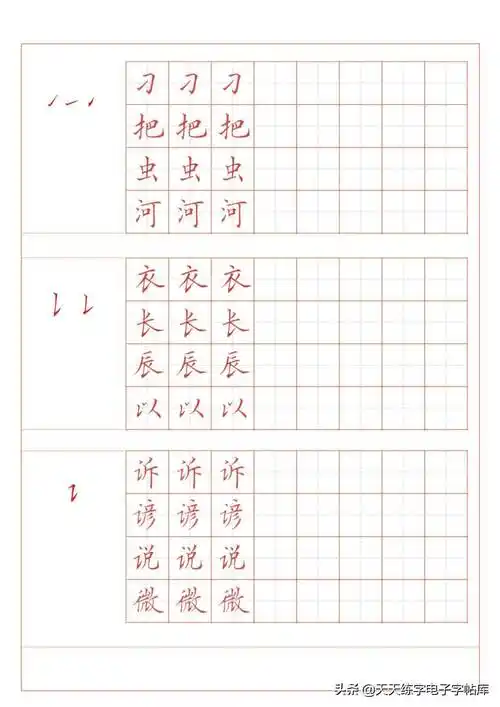 刁 刁 刁
把 把 把
虫 虫 虫
河 河 河
衣 衣 衣
长 长 长
辰 辰 辰
以 以 以
诉 诉 诉
谚 谚 谚
说 说 说
微 微 微
头条 @天天练字电子字帖库